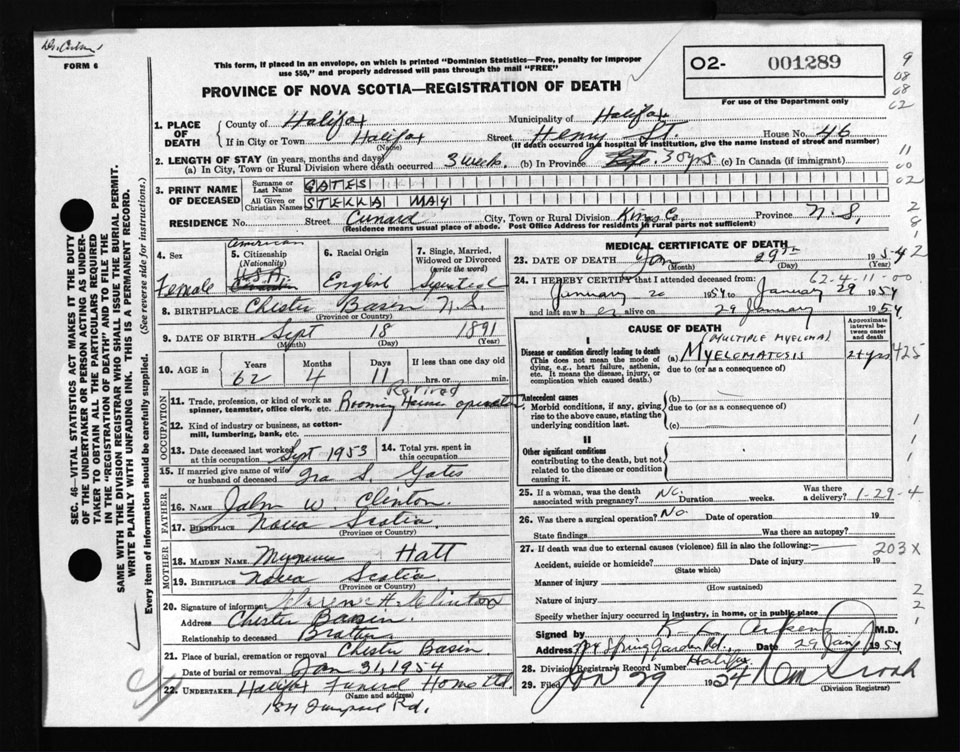 FORM 6
This form, if placed in an envelope, on which is printed "Dominion Statistics—Free, penalty for improper
use $50," and properly addressed will pass through the mail "FREE"
PROVINCE OF NOVA SCOTIA—REGISTRATION OF DEATH
O2- 001289
For use of the Department only
9
08
08
02
11
00
02
2
8
1
SEC. 46—VITAL STATISTICS ACT MAKES IT THE DUTY
OF THE UNDERTAKER OR PERSON ACTING AS UNDER-
TAKER TO OBTAIN ALL THE PARTICULARS REQUIRED
IN THE "REGISTRATION OF DEATH" AND TO FILE THE
SAME WITH THE DIVISION REGISTRAR WHO SHALL ISSUE THE BURIAL PERMIT.
WRITE PLAINLY WITH UNFADING INK. THIS IS A PERMANENT RECORD.
Every item of information should be carefully supplied. (See reverse side for instructions.)
1. PLACE OF DEATH
County of Halifax Municipality of Halifax
If in City or Town Halifax (Name) Street Henry St. House No. 46
(If death occurred in a hospital of institution, give the name instead of street and number)
2. LENGTH OF STAY (in years, months and days)
(a) In City, Town or Rural Division where death occurred 3 weeks (b) In Province 30 yrs (c) In Canada (if immigrant)
3. PRINT NAME OF DECEASED
Surname or Last Name GATES
All Given or Christian Names STELLA MAY
RESIDENCE No. Street Cunard City, Town or Rural Division Kings Co. Province N.S.
(Residence means usual place of abode. Post Office Address for residents in rural parts not sufficient)
4. Sex Female
5. Citizenship (Nationality) American USA
6. Racial Origin English
7. Single, Married, Widowed or Divorced (write the word)
8. BIRTHPLACE Chester Basin N.S.
(Province or Country)
9. DATE OF BIRTH Sept 18 1891
(Month) (Day) (Year)
10. AGE in Years 62 Months 4 Days 11 If less than one day old hrs. or min.
OCCUPATION
11. Trade, profession, or kind of work as spinner, teamster, office clerk, etc. Retired Rooming House operator
12. Kind of industry or business, as cotton-mill, lumbering, bank, etc.
13. Date deceased last worked at this occupation Sept 1953 14. Total yrs. spent in this occupation
15. If married give name of wife or husband of deceased Ira S. Gates
FATHER
16. NAME John W Clinton
17. BIRTHPLACE Nova Scotia
(Province or Country)
MOTHER
18. MAIDEN NAME Hatt
19. BIRTHPLACE Nova Scotia
(Province or Country)
20. Signature of informant Clinton
Address Chester Basin.
Relationship to deceased Brother
21. Place of burial, cremation or removal Chester Basin
Date of burial or removal Jan 31, 1954
22. UNDERTAKER Halifax Funeral Home Ltd
(Name and address)
184 Rd.
MEDICAL CERTIFICATE OF DEATH
23. DATE OF DEATH Jan 29th 1954
(Month) (Day) (Year)
2
62-4-11-00
24. I HEREBY CERTIFY that I attended deceased from:
January 20 1954 to January 29 1954
and last saw her alive on 29 January 1954
CAUSE OF DEATH
Approximate interval between onset and death
I
Disease or condition directly leading to death
(This does not mean the mode of dying, e.g., heart failure, asthenia, etc. It means the disease, injury, or complication which caused death.)
(MULTIPLE MYELOMA)
(a) MYELOMATOSIS 2+ yrs 425
due to (or as a consequence of)
Antecedent causes
Morbid conditions, if any, giving rise to the above cause, stating the underlying condition last.
(b)
due to (or as a consequence of)
(c)
II
Other significant conditions
contributing to the death, but not related to the disease or condition causing it.
25. If a woman, was the death associated with pregnancy? No. Duration weeks. Was there a delivery? 1-29-4
26. Was there a surgical operation? No. Date of operation 19
State findings Was there an autopsy?
27. If death was due to external causes (violence) fill in also the following:—
203X
Accident, suicide or homicide? (State which) Date of injury 19
Manner of injury (How sustained)
Nature of injury
Specify whether injury occurred in industry, in home, or in public place
Signed by Aikens M.D.
Address Spring Garden Rd., Halifax Date 29 Jan 1954
28. Division Registrar's Record Number
29. Filed Jan 29 1954
(Division Registrar)